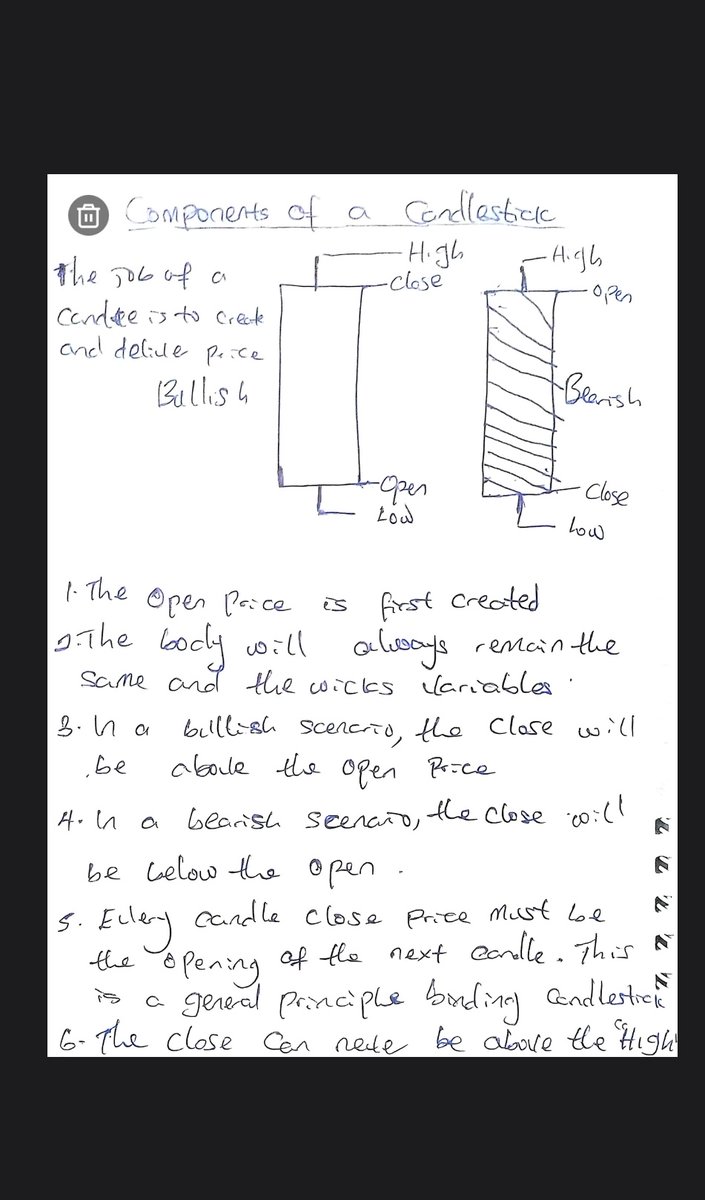 Components of a Candlestick
The job of a
candle is to create
and delive price
Bullish
High
Close
Open
Low
High
Open
Bearish
Close
Low
1. The Open Price is first created
2. The body will always remain the
same and the wicks variables.
3. In a bullish scenario, the close will
be above the open Price
4. In a bearish scenario, the close will
be below the open.
5. Every candle close price must be
the opening of the next candle. This
is a general principle binding Candlestick
6- The close can never be above the "High